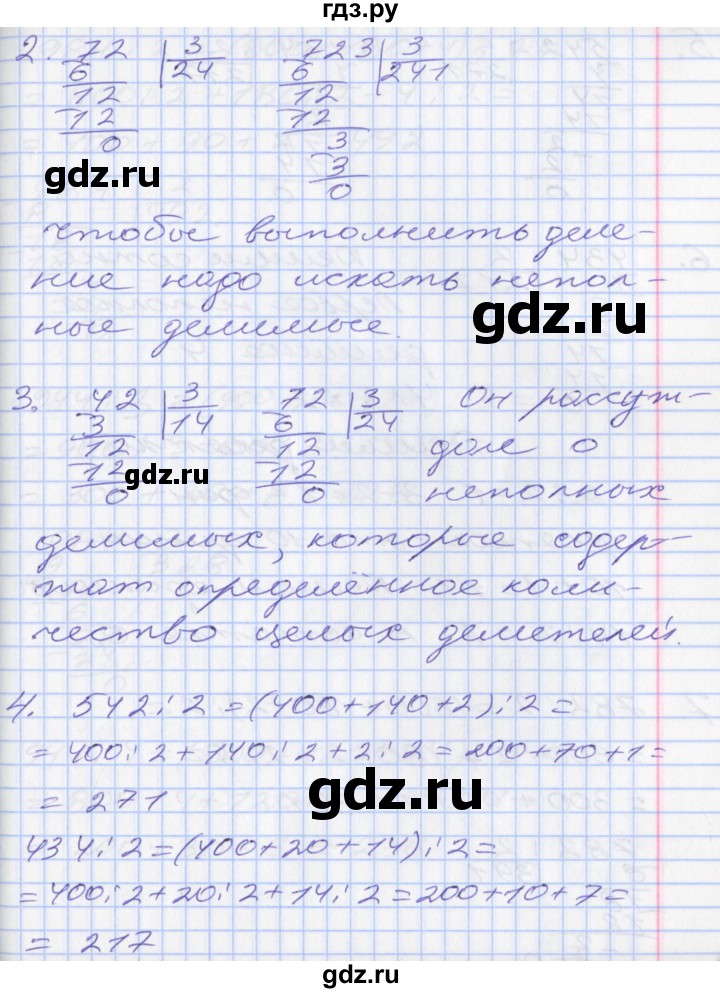 гдз.ру
2. 72 3 723 3
6 24 6 241
12 12
12 12
0 3
3
0
gdz.ru
чтобы выполнить деле-
ние надо искать непол-
ные делимые.
gdz.ru
3. 42 3 72 3 Он рассуж-
3 14 6 24
12 12 дал о
12 12
0 0 неполных
gdz.ru
делимых, которые содер-
жат определённое коли-
чество целых делителей.
4. 542:2=(400+140+2):2=
=400:2+140:2+2:2=200+70+1=
= 271
gdz.ru
434:2=(400+20+14):2=
=400:2+20:2+14:2=200+10+7=
= 217
gdz.ru